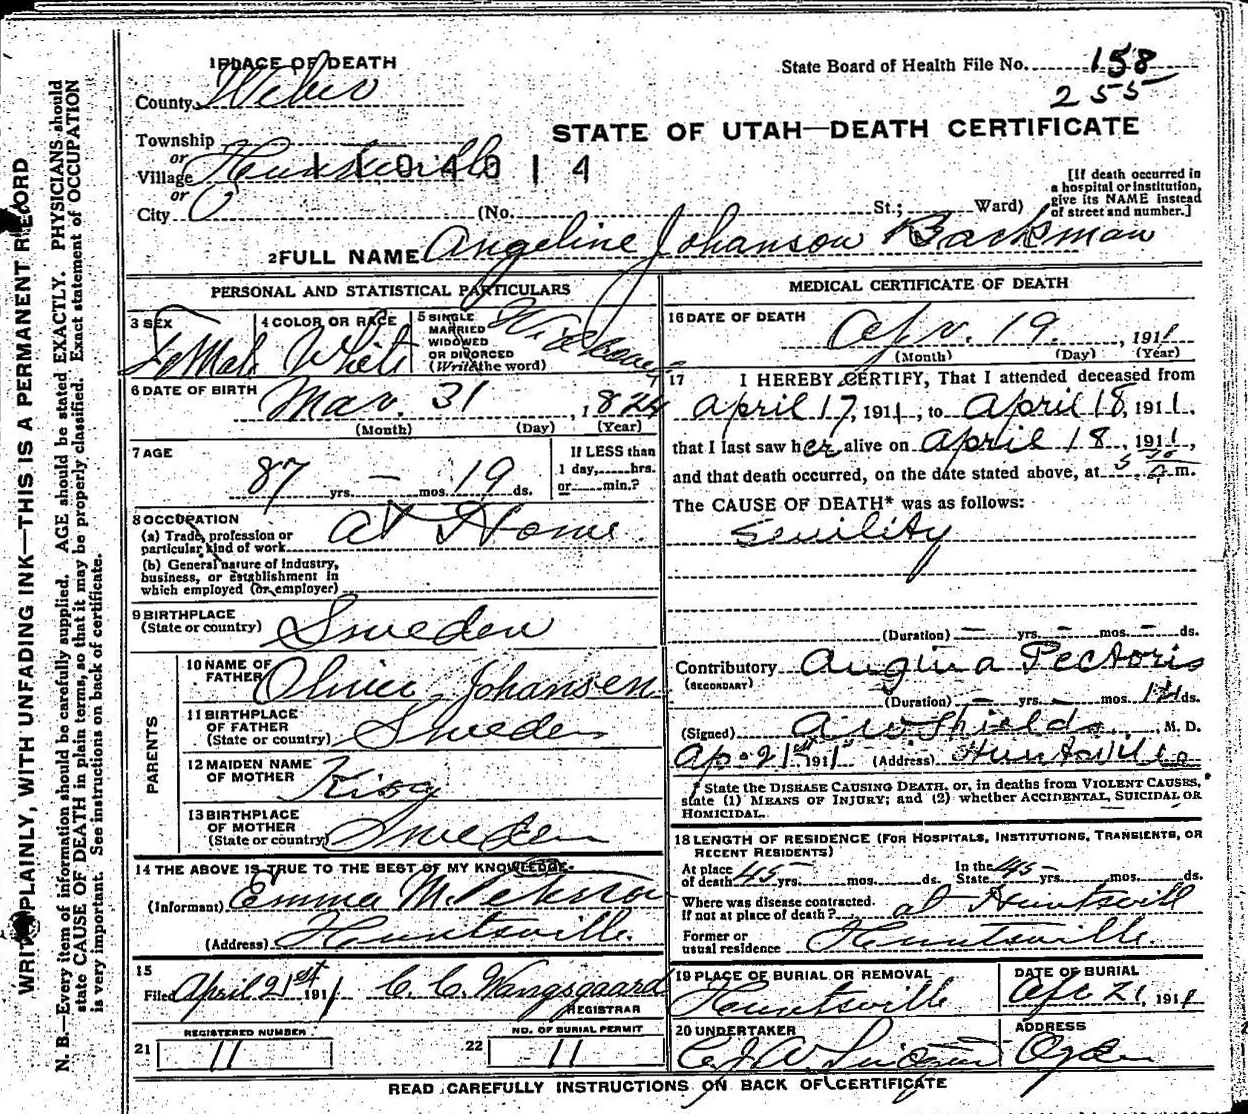 WRITE PLAINLY, WITH UNFADING INK—THIS IS A PERMANENT RECORD
N. B.—Every item of information should be carefully supplied. AGE should be stated EXACTLY. PHYSICIANS should
state CAUSE OF DEATH in plain terms, so that it may be properly classified. Exact statement of OCCUPATION
is very important. See instructions on back of certificate.
1 PLACE OF DEATH
County Weber
Township
or
Village Huntsville
or
City
1104014
State Board of Health File No. 158
255
STATE OF UTAH—DEATH CERTIFICATE
(No. St.; Ward)
[If death occurred in
a hospital or institution,
give its NAME instead
of street and number.]
2 FULL NAME Angeline Johanson Backman
PERSONAL AND STATISTICAL PARTICULARS
3 SEX
FeMale
4 COLOR OR RACE
White
5 SINGLE
MARRIED
WIDOWED
OR DIVORCED
(Write the word)
6 DATE OF BIRTH
Mar. 31, 1824
(Month) (Day) (Year)
7 AGE
87 yrs. — mos. 19 ds.
If LESS than
1 day, hrs.
or min.?
8 OCCUPATION
(a) Trade, profession or
particular kind of work At Home
(b) General nature of industry,
business, or establishment in
which employed (or employer)
9 BIRTHPLACE
(State or country) Sweden
PARENTS
10 NAME OF
FATHER Oliver Johansen
11 BIRTHPLACE
OF FATHER
(State or country) Sweden
12 MAIDEN NAME
OF MOTHER
13 BIRTHPLACE
OF MOTHER
(State or country) Sweden
14 THE ABOVE IS TRUE TO THE BEST OF MY KNOWLEDGE
(Informant) Emma M. Peterson
(Address) Huntsville.
15
Filed April 21st 1911 C. C. Wangsgaard
REGISTRAR
REGISTERED NUMBER
21 11
NO. OF BURIAL PERMIT
22 11
MEDICAL CERTIFICATE OF DEATH
16 DATE OF DEATH
Apr. 19., 1911
(Month) (Day) (Year)
17 I HEREBY CERTIFY, That I attended deceased from
April 17, 1911, to April 18, 1911,
that I last saw her alive on April 18, 1911,
and that death occurred, on the date stated above, at 5 m.
The CAUSE OF DEATH* was as follows:
Senility
(Duration) — yrs. — mos. — ds.
Contributory Angina Pectoris
(SECONDARY)
(Duration) — yrs. — mos. ds.
(Signed) A W Shields, M. D.
Ap. 21st 1911 (Address) Huntsville
* State the DISEASE CAUSING DEATH, or, in deaths from VIOLENT CAUSES,
state (1) MEANS OF INJURY; and (2) whether ACCIDENTAL, SUICIDAL OR
HOMICIDAL.
18 LENGTH OF RESIDENCE (FOR HOSPITALS, INSTITUTIONS, TRANSIENTS, OR
RECENT RESIDENTS)
At place
of death 45 yrs. mos. ds.
In the
State 45 yrs. mos. ds.
Where was disease contracted.
If not at place of death? at Huntsvill
Former or
usual residence Huntsville.
19 PLACE OF BURIAL OR REMOVAL
Huntsville
DATE OF BURIAL
21, 1911
20 UNDERTAKER
ADDRESS
Ogden
READ CAREFULLY INSTRUCTIONS ON BACK OF CERTIFICATE